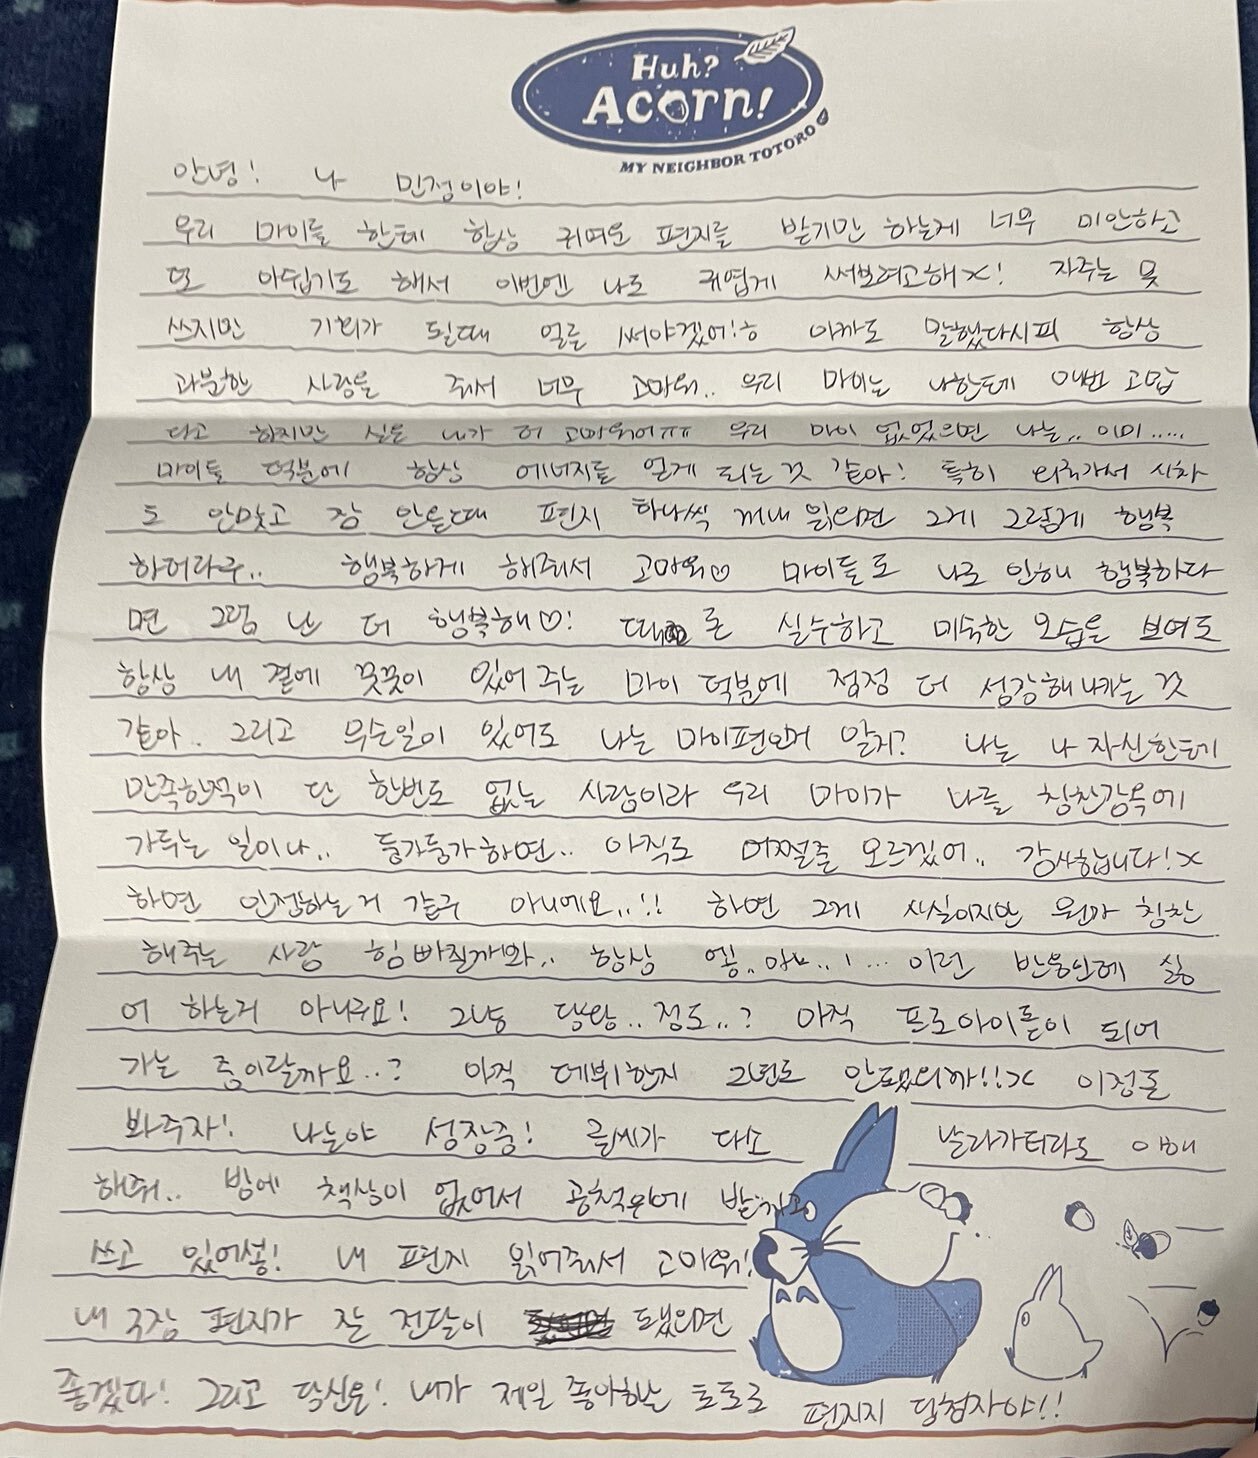 Huh?
Acorn!
MY NEIGHBOR TOTORO
안녕! 나 민정이야!
우리 마이들 한테 항상 귀여운 편지를 받기만 하는게 너무 미안하고
또 아쉽기도 해서 이번엔 나도 귀엽게 써보려고해ㅊ! 자주는 못
쓰지만 기회가 될때 얼른 써야겠어!ㅎ 아까도 말했다시피 항상
과분한 사랑을 줘서 너무 고마워.. 우리 마이는 나한테 매번 고맙
다고 하지만 실은 내가 더 고마워어ㅠㅠ 우리 마이 없었으면 나는.. 이미.....
마이들 덕분에 항상 에너지를 얻게 되는 것 같아! 특히 외국가서 시차
도 안맞고 잠 안올때 편지 하나씩 꺼내 읽으면 그게 그렇게 행복
하더라구.. 행복하게 해줘서 고마워♡ 마이들도 나로 인해 행복하다
면 그럼 난 더 행복해♡! 때로는 실수하고 미숙한 모습을 보여도
항상 내 곁에 꿋꿋이 있어 주는 마이 덕분에 점점 더 성장해 나가는 것
같아. 그리고 무슨일이 있어도 나는 마이편인거 알지? 나는 나 자신한테
만족한적이 단 한번도 없는 사람이라 우리 마이가 나를 칭찬감옥에
가두는 일이나.. 둥가둥가하면.. 아직도 어쩔줄 모르겠어.. 감사합니다!ㅊ
하면 인정하는거 같구 아니에요..!! 하면 그게 사실이지만 뭔가 칭찬
해주는 사람 힘 빠질까봐.. 항상 엥..아..!... 이런 반응인데 싫
어 하는거 아니구요! 그냥 당황..정도..? 아직 프로아이돌이 되어
가는 중이랄까요..? 아직 데뷔한지 2년도 안됐으니까!!ㅊ 이정도
봐주자! 나는야 성장중! 글씨가 다소 날라가더라도 이해
해줘.. 방에 책상이 없어서 공책위에 받치고
쓰고 있어성! 내 편지 읽어줘서 고마워!
내 긴 편지가 잘 전달이 됐으면
좋겠다! 그리고 당신은! 내가 제일 좋아하는 토토로 편지지 당첨자야!!